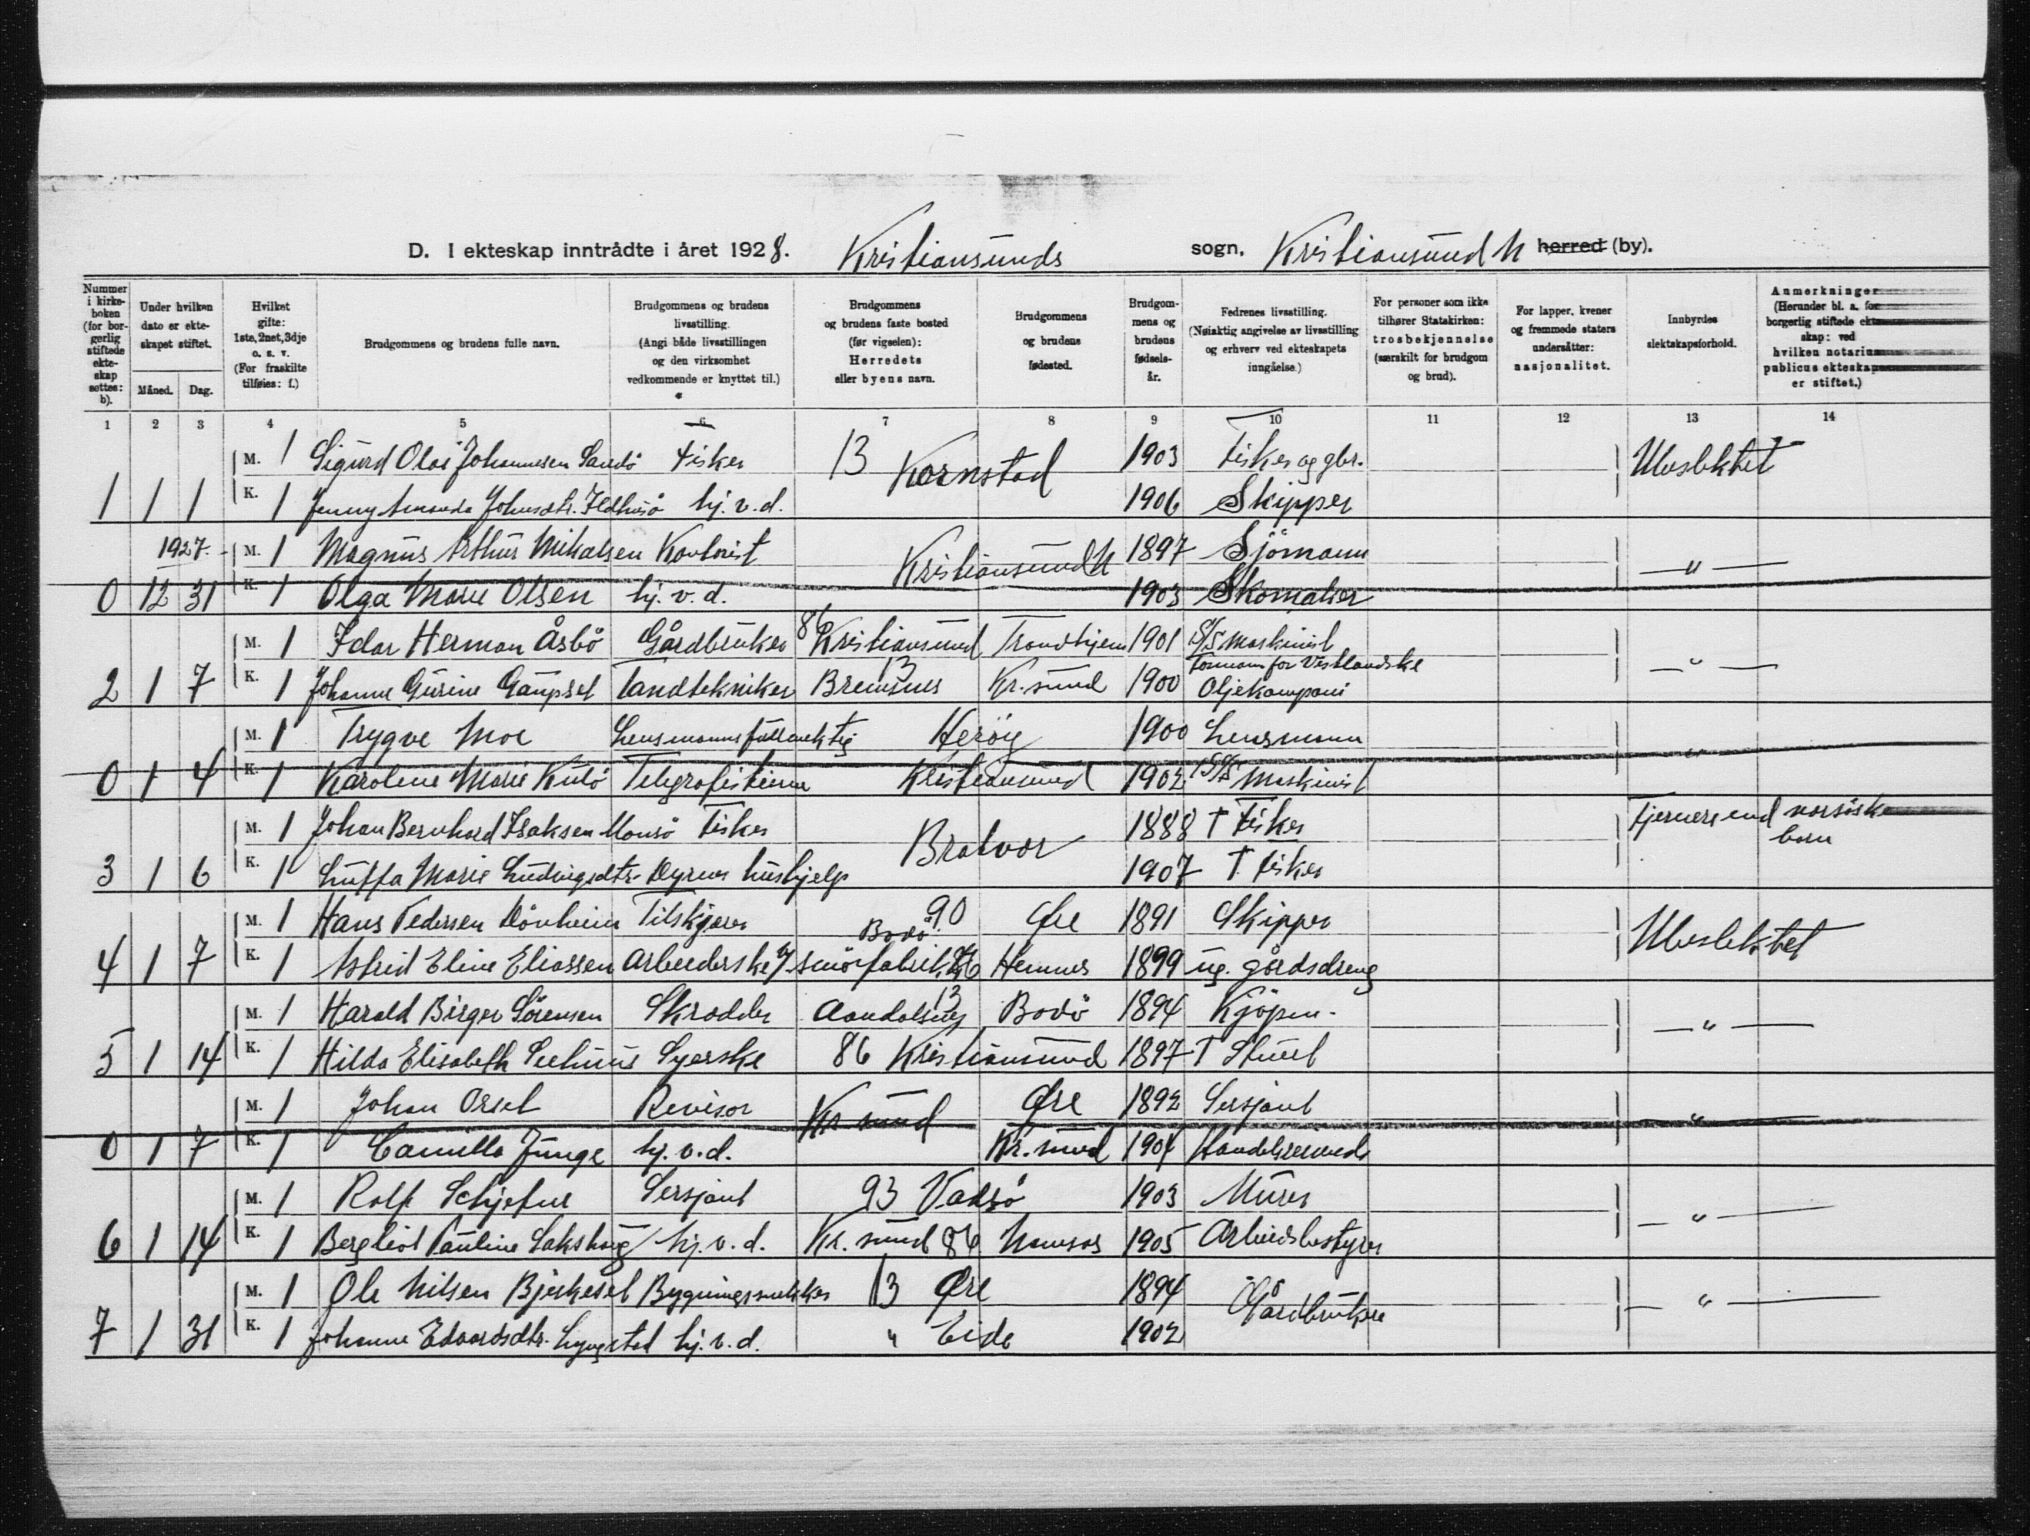 D. I ekteskap inntrådte i året 1928. Kristiansunds sogn, Kristiansund N herred (by).
Nummer i kirkeboken (for borgerlig stiftede ekteskap settes: b).
Under hvilken dato er ekteskapet stiftet.
Måned. Dag.
Hvilket gifte: 1ste, 2net, 3dje o. s. v. (For fraskilte tilføies: f.)
Brudgommens og brudens fulle navn.
Brudgommens og brudens livsstilling. (Angi både livsstillingen og den virksomhet vedkommende er knyttet til.)
Brudgommens og brudens faste bosted (før vigselen): Herredets eller byens navn.
Brudgommens og brudens fødested.
Brudgommens og brudens fødselsår.
Fedrenes livsstilling. (Nøiaktig angivelse av livsstilling og erhverv ved ekteskapets inngåelse.)
For personer som ikke tilhører Statskirken: trosbekjennelse (særskilt for brudgom og brud).
For lapper, kvener og fremmede staters undersåtter: nasjonalitet.
Innbyrdes slektskapsforhold.
Anmerkninger (Herunder bl. a. for borgerlig stiftede ekteskap: ved hvilken notarius publicus ekteskapet er stiftet.)
1 2 3 4 5 6 7 8 9 10 11 12 13 14
M. 1 Sigurd Olai Johannesen Sandö Fisker 13 Kornstad 1903 Fisker og gbr. Ubeslektet
1 1 1 K. 1 Jenny Amanda Johnsdtr. hj. v. d. 1906 Skipper
1927. M. 1 Magnus Arthur Mikalsen Kontorist Kristiansund N 1897 Sjömann — " —
0 12 31 K. 1 Olga Marie Olsen hj. v. d. 1903 Skomaker
M. 1 Idar Herman Åsbö Gårdbruker 86 Kristiansund Trondhjem 1901 S/S Maskinist — " —
2 1 7 K. 1 Johanne Gurine Gaupset Tandtekniker 13 Bremsnes Kr.sund 1900 Formann for Vestlandske Oljekompani
M. 1 Trygve Moe Lensmannsfullmektig Heröy 1900 Lensmann "
0 1 4 K. 1 Karolene Marie Kulö Telegrafistinne Kristiansund 1902 S/S Maskinist
M. 1 Johan Bernhard Isaksen Monsö Fisker Bratvær 1888 † Fisker Fjernere end norsöskenbarn
3 1 6 K. 1 Luffa Marie Ludvigsdtr. Dyrnes hushjelp 1907 † Fisker
M. 1 Hans Pedersen Dönheim Tilskjærer 90 Bodö Øre 1891 Skipper Ubeslektet
4 1 7 K. 1 Astrid Eline Eliassen Arbeiderske v/ smörfabrik 86 Hemnes 1899 ug. gårdsdreng
M. 1 Harald Birger Sörensen Skrædder 13 Aandalsnes Bodö 1894 Kjöpm. — " —
5 1 14 K. 1 Hilda Elisabeth Syerske 86 Kristiansund 1897 † Stuert
M. 1 Johan Orset Revisor Kr.sund Øre 1892 Sersjant "
0 1 7 K. 1 Camilla Junge hj. v. d. Kr.sund 1904 Handelsreisende
M. 1 Rolf Schjefur Sersjant 93 Vadsö 1903 Murer — " —
6 1 14 K. 1 Bergliot Pauline Sakshaug hj. v. d. Kr. sund 86 Namsos 1905 Arbeidsbestyrer
M. 1 Ole Nilsen Bjerkeset Bygningssnekker 13 Øre 1894 Gårdbrukere — " —
7 1 31 K. 1 Johanne Edvardsdtr. Lyngstad hj. v. d. " Eide 1902